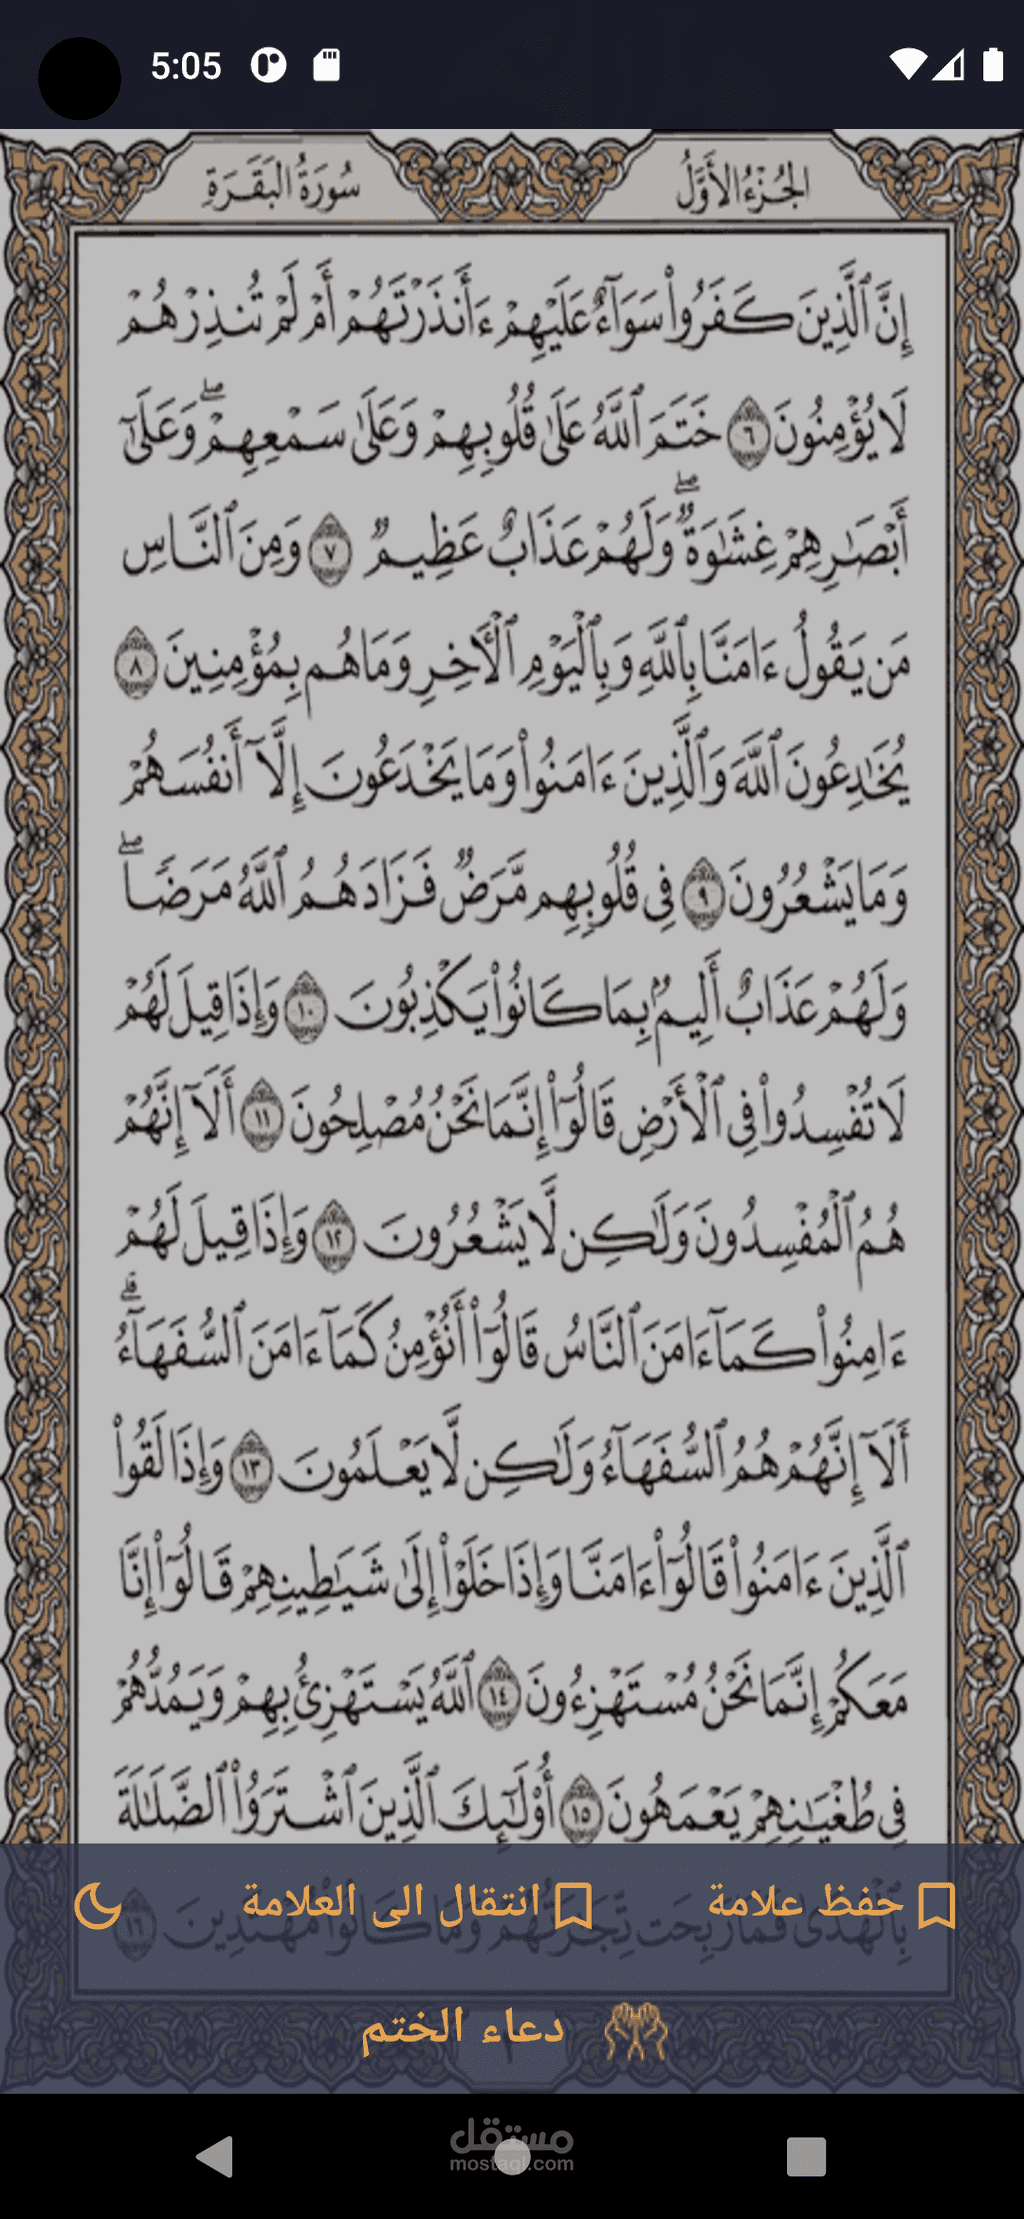 5:05
سُورَةُ البَقَرَةِ
الجُزْءُ الأَوَّلُ
إِنَّ ٱلَّذِينَ كَفَرُوا۟ سَوَآءٌ عَلَيْهِمْ ءَأَنذَرْتَهُمْ أَمْ لَمْ تُنذِرْهُمْ
لَا يُؤْمِنُونَ ٦ خَتَمَ ٱللَّهُ عَلَىٰ قُلُوبِهِمْ وَعَلَىٰ سَمْعِهِمْ ۖ وَعَلَىٰٓ
أَبْصَٰرِهِمْ غِشَٰوَةٌ ۖ وَلَهُمْ عَذَابٌ عَظِيمٌ ٧ وَمِنَ ٱلنَّاسِ
مَن يَقُولُ ءَامَنَّا بِٱللَّهِ وَبِٱلْيَوْمِ ٱلْـَٔاخِرِ وَمَا هُم بِمُؤْمِنِينَ ٨
يُخَٰدِعُونَ ٱللَّهَ وَٱلَّذِينَ ءَامَنُوا۟ وَمَا يَخْدَعُونَ إِلَّآ أَنفُسَهُمْ
وَمَا يَشْعُرُونَ ٩ فِى قُلُوبِهِم مَّرَضٌ فَزَادَهُمُ ٱللَّهُ مَرَضًا ۖ
وَلَهُمْ عَذَابٌ أَلِيمٌۢ بِمَا كَانُوا۟ يَكْذِبُونَ ١٠ وَإِذَا قِيلَ لَهُمْ
لَا تُفْسِدُوا۟ فِى ٱلْأَرْضِ قَالُوٓا۟ إِنَّمَا نَحْنُ مُصْلِحُونَ ١١ أَلَآ إِنَّهُمْ
هُمُ ٱلْمُفْسِدُونَ وَلَٰكِن لَّا يَشْعُرُونَ ١٢ وَإِذَا قِيلَ لَهُمْ
ءَامِنُوا۟ كَمَآ ءَامَنَ ٱلنَّاسُ قَالُوٓا۟ أَنُؤْمِنُ كَمَآ ءَامَنَ ٱلسُّفَهَآءُ ۗ
أَلَآ إِنَّهُمْ هُمُ ٱلسُّفَهَآءُ وَلَٰكِن لَّا يَعْلَمُونَ ١٣ وَإِذَا لَقُوا۟
ٱلَّذِينَ ءَامَنُوا۟ قَالُوٓا۟ ءَامَنَّا وَإِذَا خَلَوْا۟ إِلَىٰ شَيَٰطِينِهِمْ قَالُوٓا۟ إِنَّا
مَعَكُمْ إِنَّمَا نَحْنُ مُسْتَهْزِءُونَ ١٤ ٱللَّهُ يَسْتَهْزِئُ بِهِمْ وَيَمُدُّهُمْ
فِى طُغْيَٰنِهِمْ يَعْمَهُونَ ١٥ أُو۟لَٰٓئِكَ ٱلَّذِينَ ٱشْتَرَوُا۟ ٱلضَّلَٰلَةَ
بِٱلْهُدَىٰ فَمَا رَبِحَت تِّجَٰرَتُهُمْ وَمَا كَانُوا۟ مُهْتَدِينَ ١٦
حفظ علامة
انتقال الى العلامة
دعاء الختم
مستقل
mostaql.com